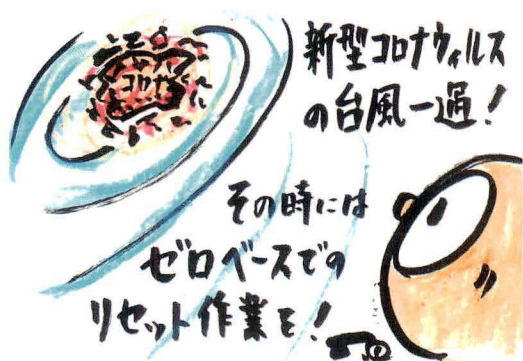 新型コロナウィルス
の台風一過!
コロナ
その時には
ゼロベースでの
リセット作業を!